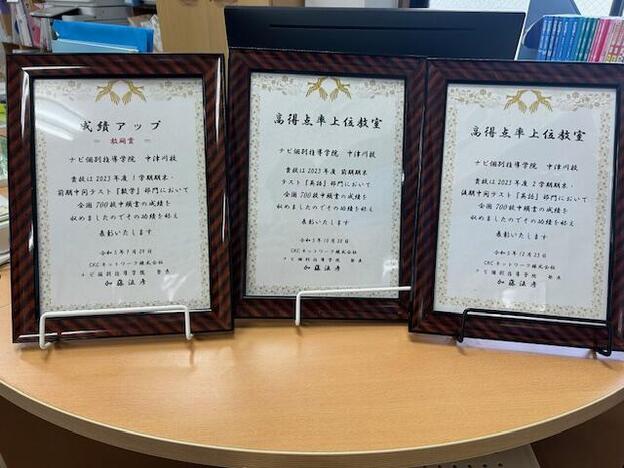 成績アップ
敢闘賞
ナビ個別指導学院 中津川校
貴校は2023年度 1学期期末・
前期中間テスト「数学」部門において
全国700校中頭書の成績を
収めましたのでその功績を称え
表彰いたします
令和5年9月29日
CKCネットワーク株式会社
ナビ個別指導学院 塾長
加藤法彦
高得点率上位教室
ナビ個別指導学院 中津川校
貴校は2023年度 前期期末
テスト「英語」部門において
全国700校中頭書の成績を
収めましたのでその功績を称え
表彰いたします
CKCネットワーク株式会社
ナビ個別指導学院 塾長
加藤法彦
高得点率上位教室
ナビ個別指導学院 中津川校
貴校は2023年度 2学期期末・
後期中間テスト「英語」部門において
全国700校中頭書の成績を
収めましたのでその功績を称え
表彰いたします
CKCネットワーク株式会社
ナビ個別指導学院 塾長
加藤法彦